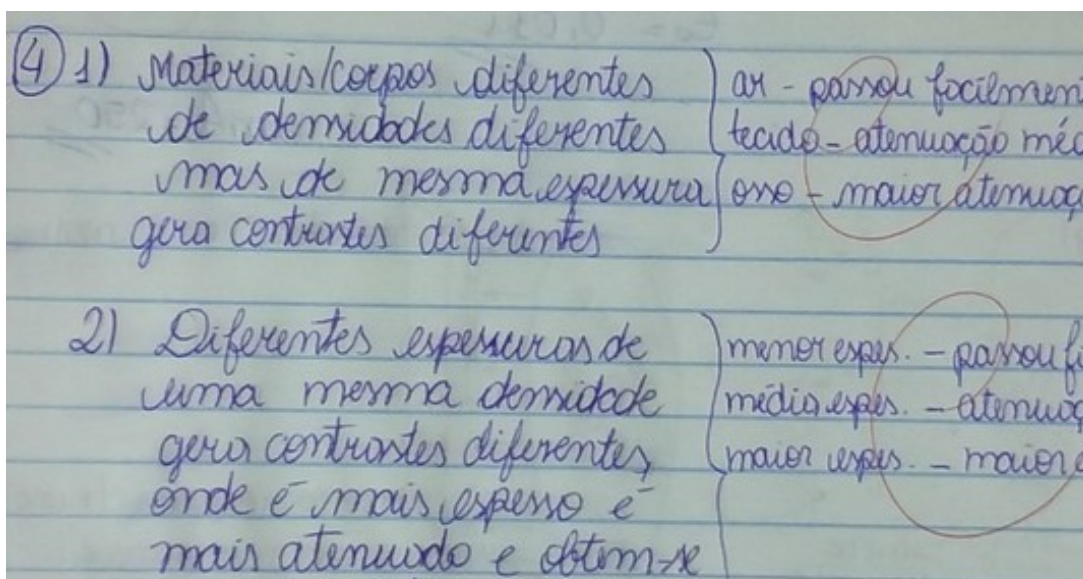 ④ 1) Materiais/corpos diferentes
de densidades diferentes
mas de mesma espessura
gera contrastes diferentes
ar - passou facilmen
tecido - atenuação méd
osso - maior atenuaç
2) Diferentes espessuras de
uma mesma densidade
gera contrastes diferentes,
onde é mais espesso é
mais atenuado e obtem-se
menor espes. - passou f
média espes. - atenuaç
maior espes. - maior